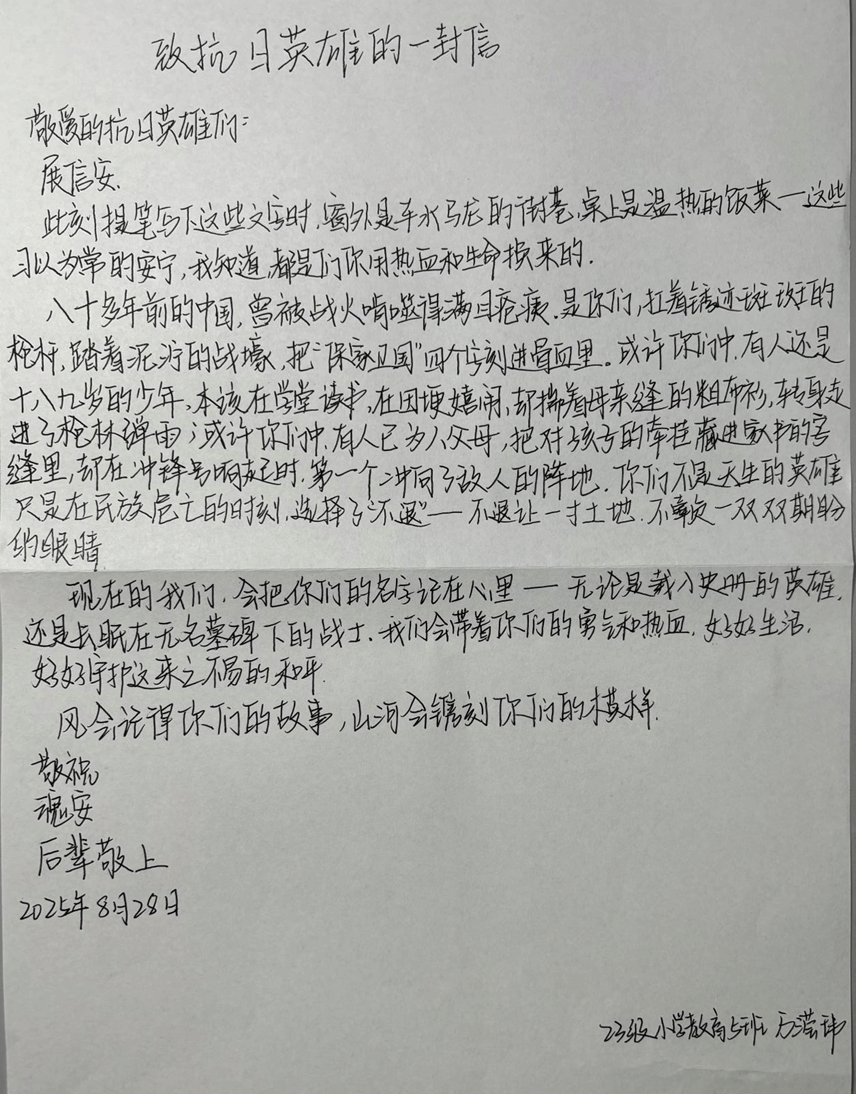 致抗日英雄的一封信
敬爱的抗日英雄们:
展信安.
此刻提笔写下这些文字时,窗外是车水马龙的街巷,桌上是温热的饭菜—这些
习以为常的安宁,我知道,都是们你用热血和生命换来的.
八十多年前的中国,曾被战火啃噬得满目疮痍.是你们,扛着锈迹斑斑的
枪杆,踏着泥泞的战壕,把“保家卫国”四个字刻进骨血里。或许你们中,有人还是
十八九岁的少年,本该在学堂读书,在田埂嬉闹,却揣着母亲缝的粗布衫,转身走
进了枪林弹雨;或许你们中,有人已为人父母,把对孩子的牵挂藏进家书的字
缝里,却在冲锋号响起时,第一个冲向了敌人的阵地.你们不是天生的英雄
只是在民族危亡的时刻,选择了“不退”—不退让一寸土地.不辜负一双双期盼
的眼睛
现在的我们,会把你们的名字记在心里—无论是载入史册的英雄,
还是长眠在无名墓碑下的战士.我们会带着你们的勇气和热血,好好生活,
好好守护这来之不易的和平.
风会记得你们的故事,山河会镌刻你们的模样.
敬祝
魂安
后辈敬上
2025年8月28日
23级小学教育5班